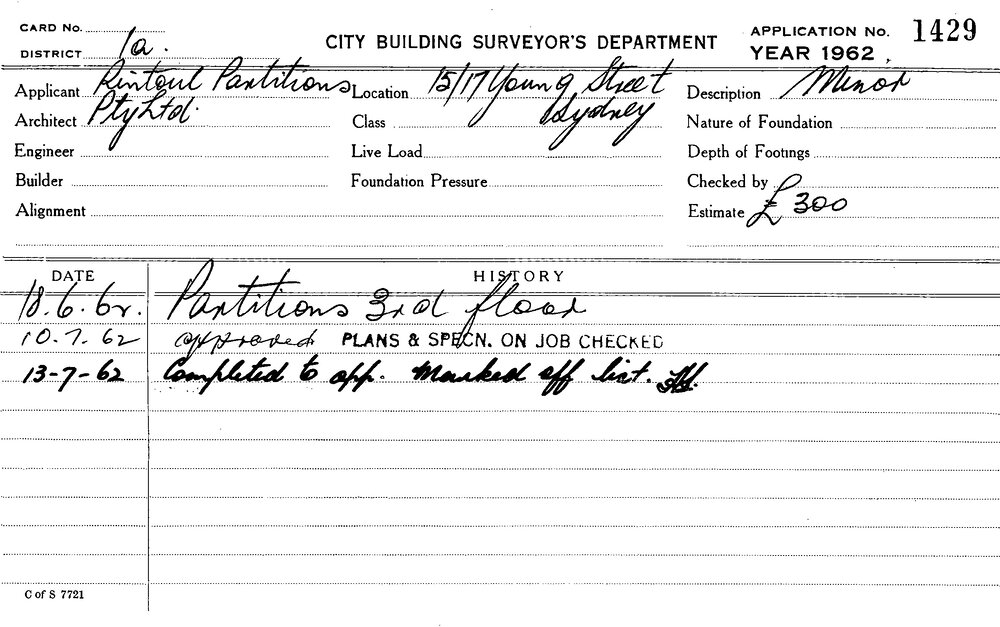 CARD No.
DISTRICT 1a.
CITY BUILDING SURVEYOR'S DEPARTMENT
APPLICATION No. 1429
YEAR 1962
Applicant Rintoul Partitions Location 15/17 Young Street Description Minor
Architect Pty Ltd. Class Sydney Nature of Foundation
Engineer Live Load Depth of Footings
Builder Foundation Pressure Checked by
Alignment Estimate £ 300
DATE HISTORY
18.6.62. Partitions 3rd floor
10.7.62 approved PLANS & SPECN. ON JOB CHECKED
13-7-62 Completed to app. Marked off list.
C of S 7721